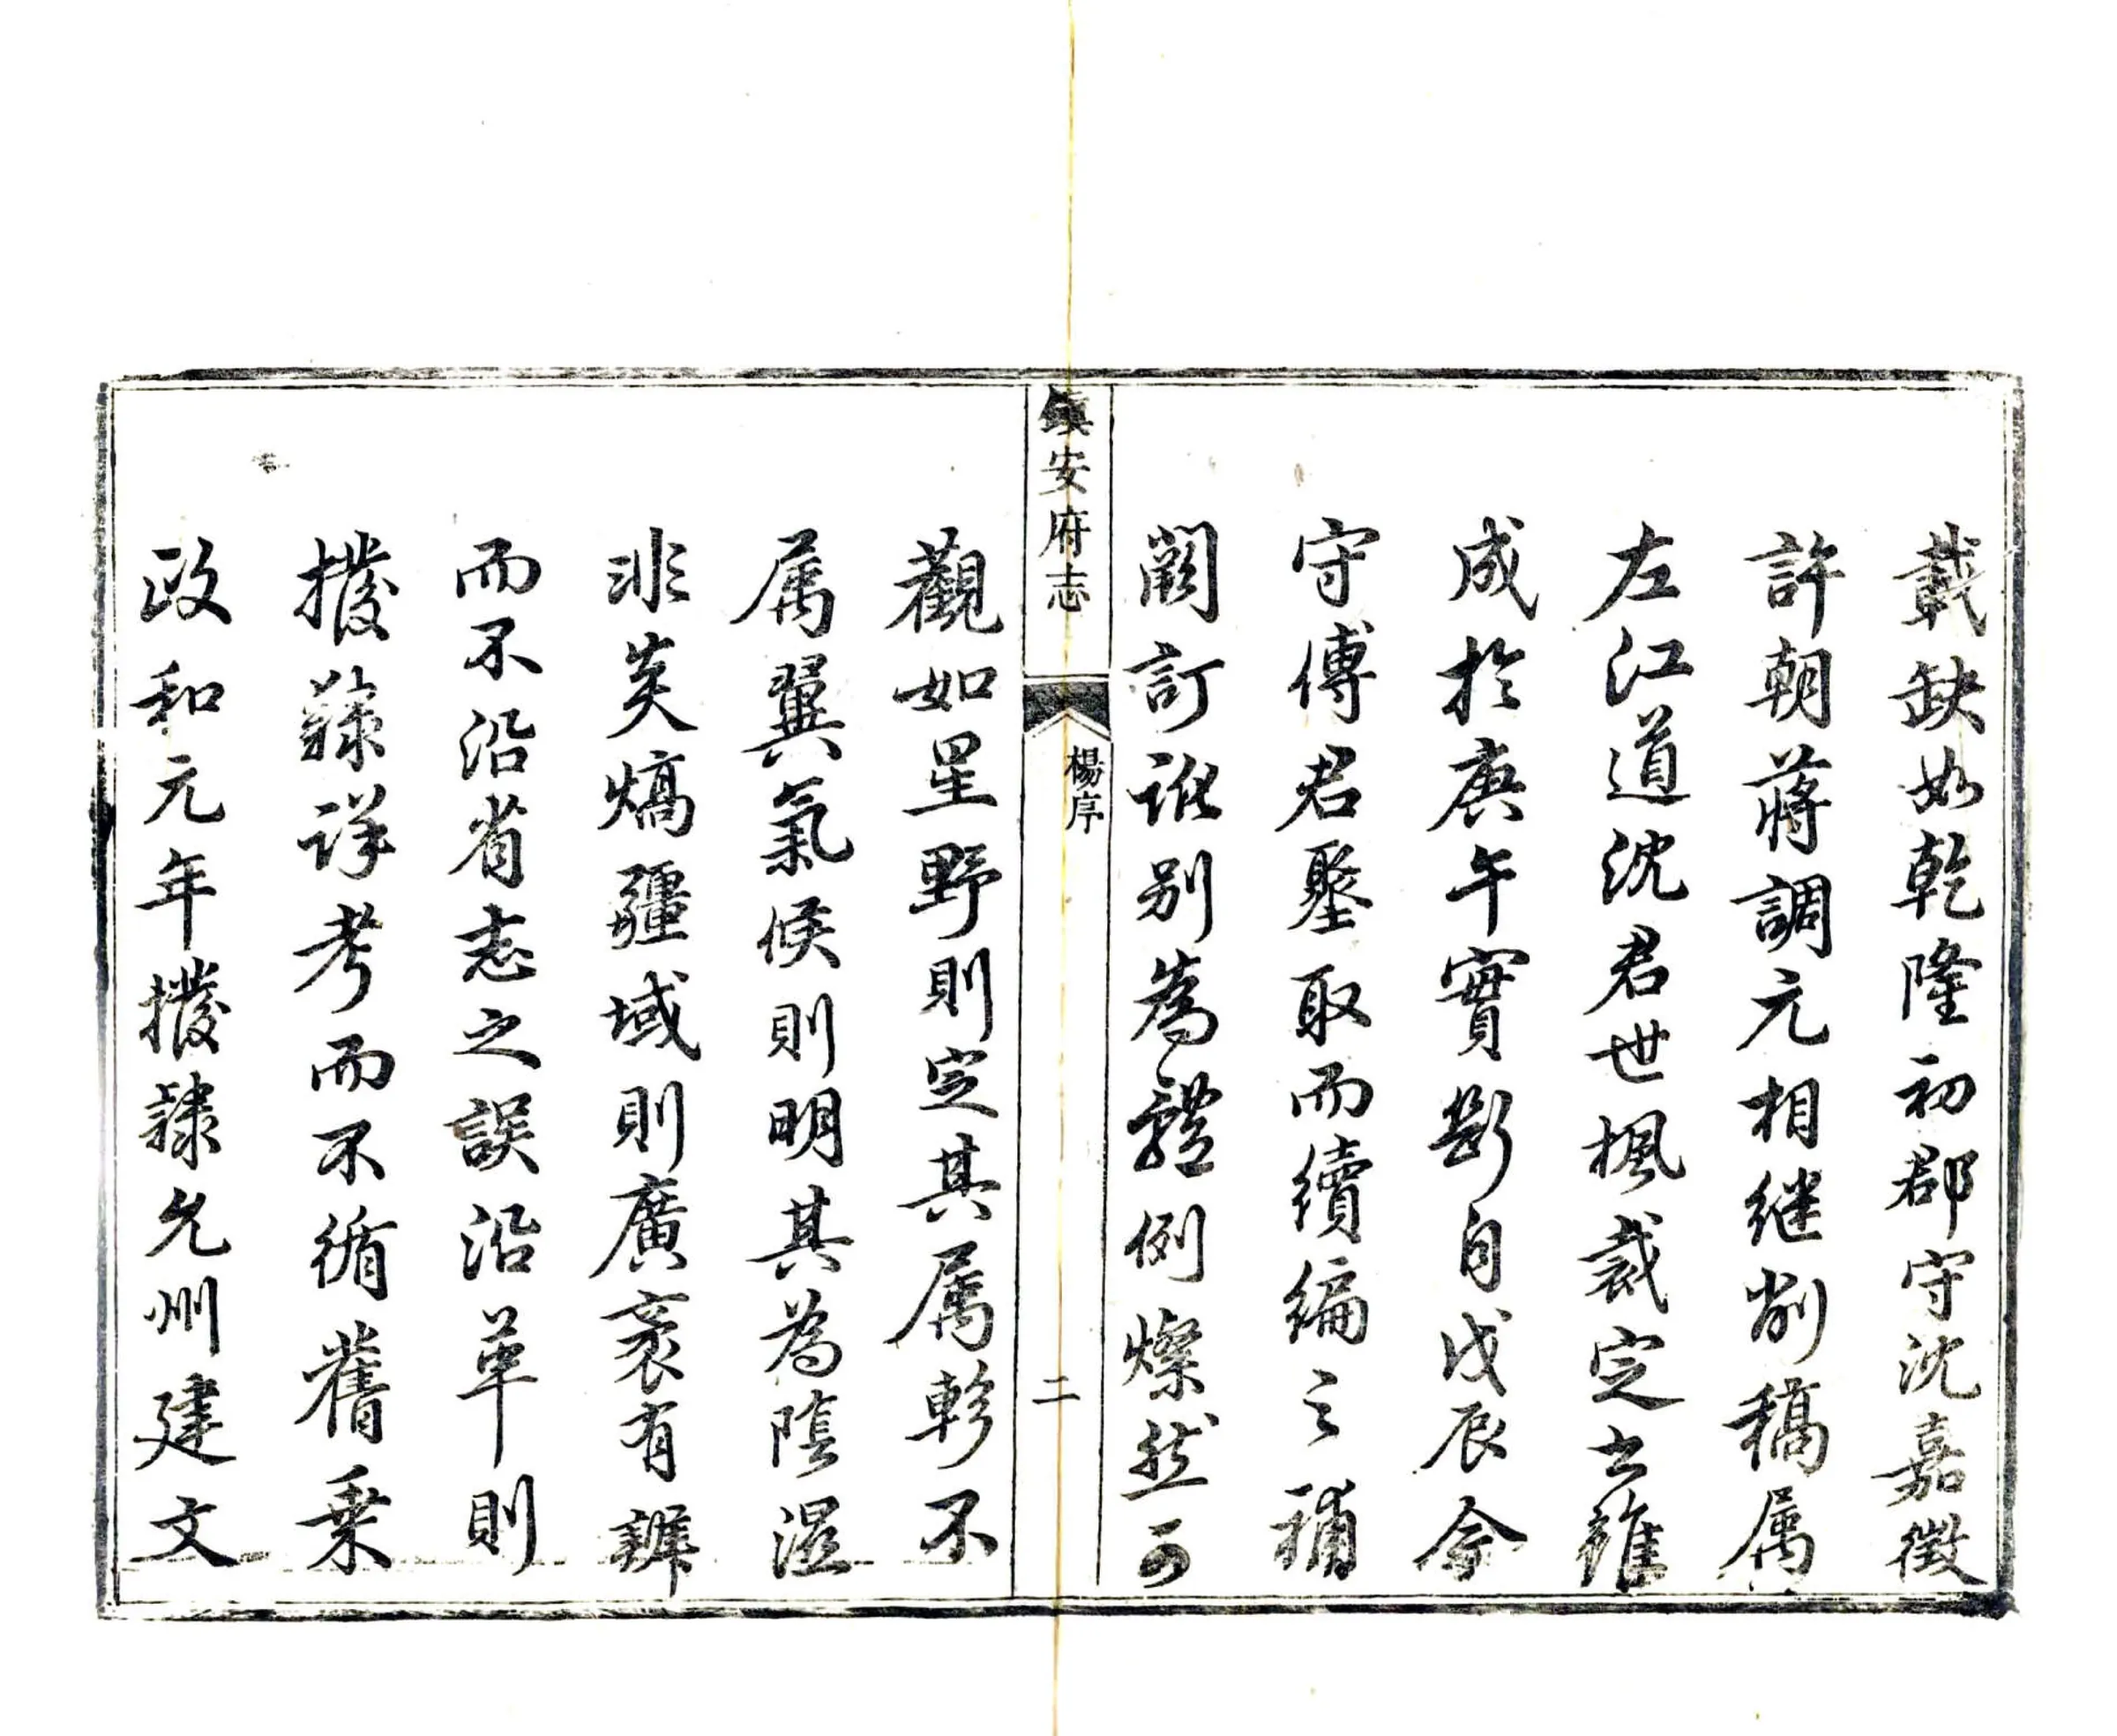 載缺如乾隆初郡守沈嘉徵
許朝蔣調元相継創稿属
左江道沈君世楓裁定書雖
成於庚午實斷自戊辰余
守傅君聚取而續編之補
闕訂訛别為體例燦然可
鎮安府志
楊序
二
觀如星野則定其属軫不
属翼氣候則明其為陰濕
非炎熇疆域則廣袤有辨
而不沿省志之誤沿革則
撥隸详考而不循舊乘
政和元年撥隸允州建文